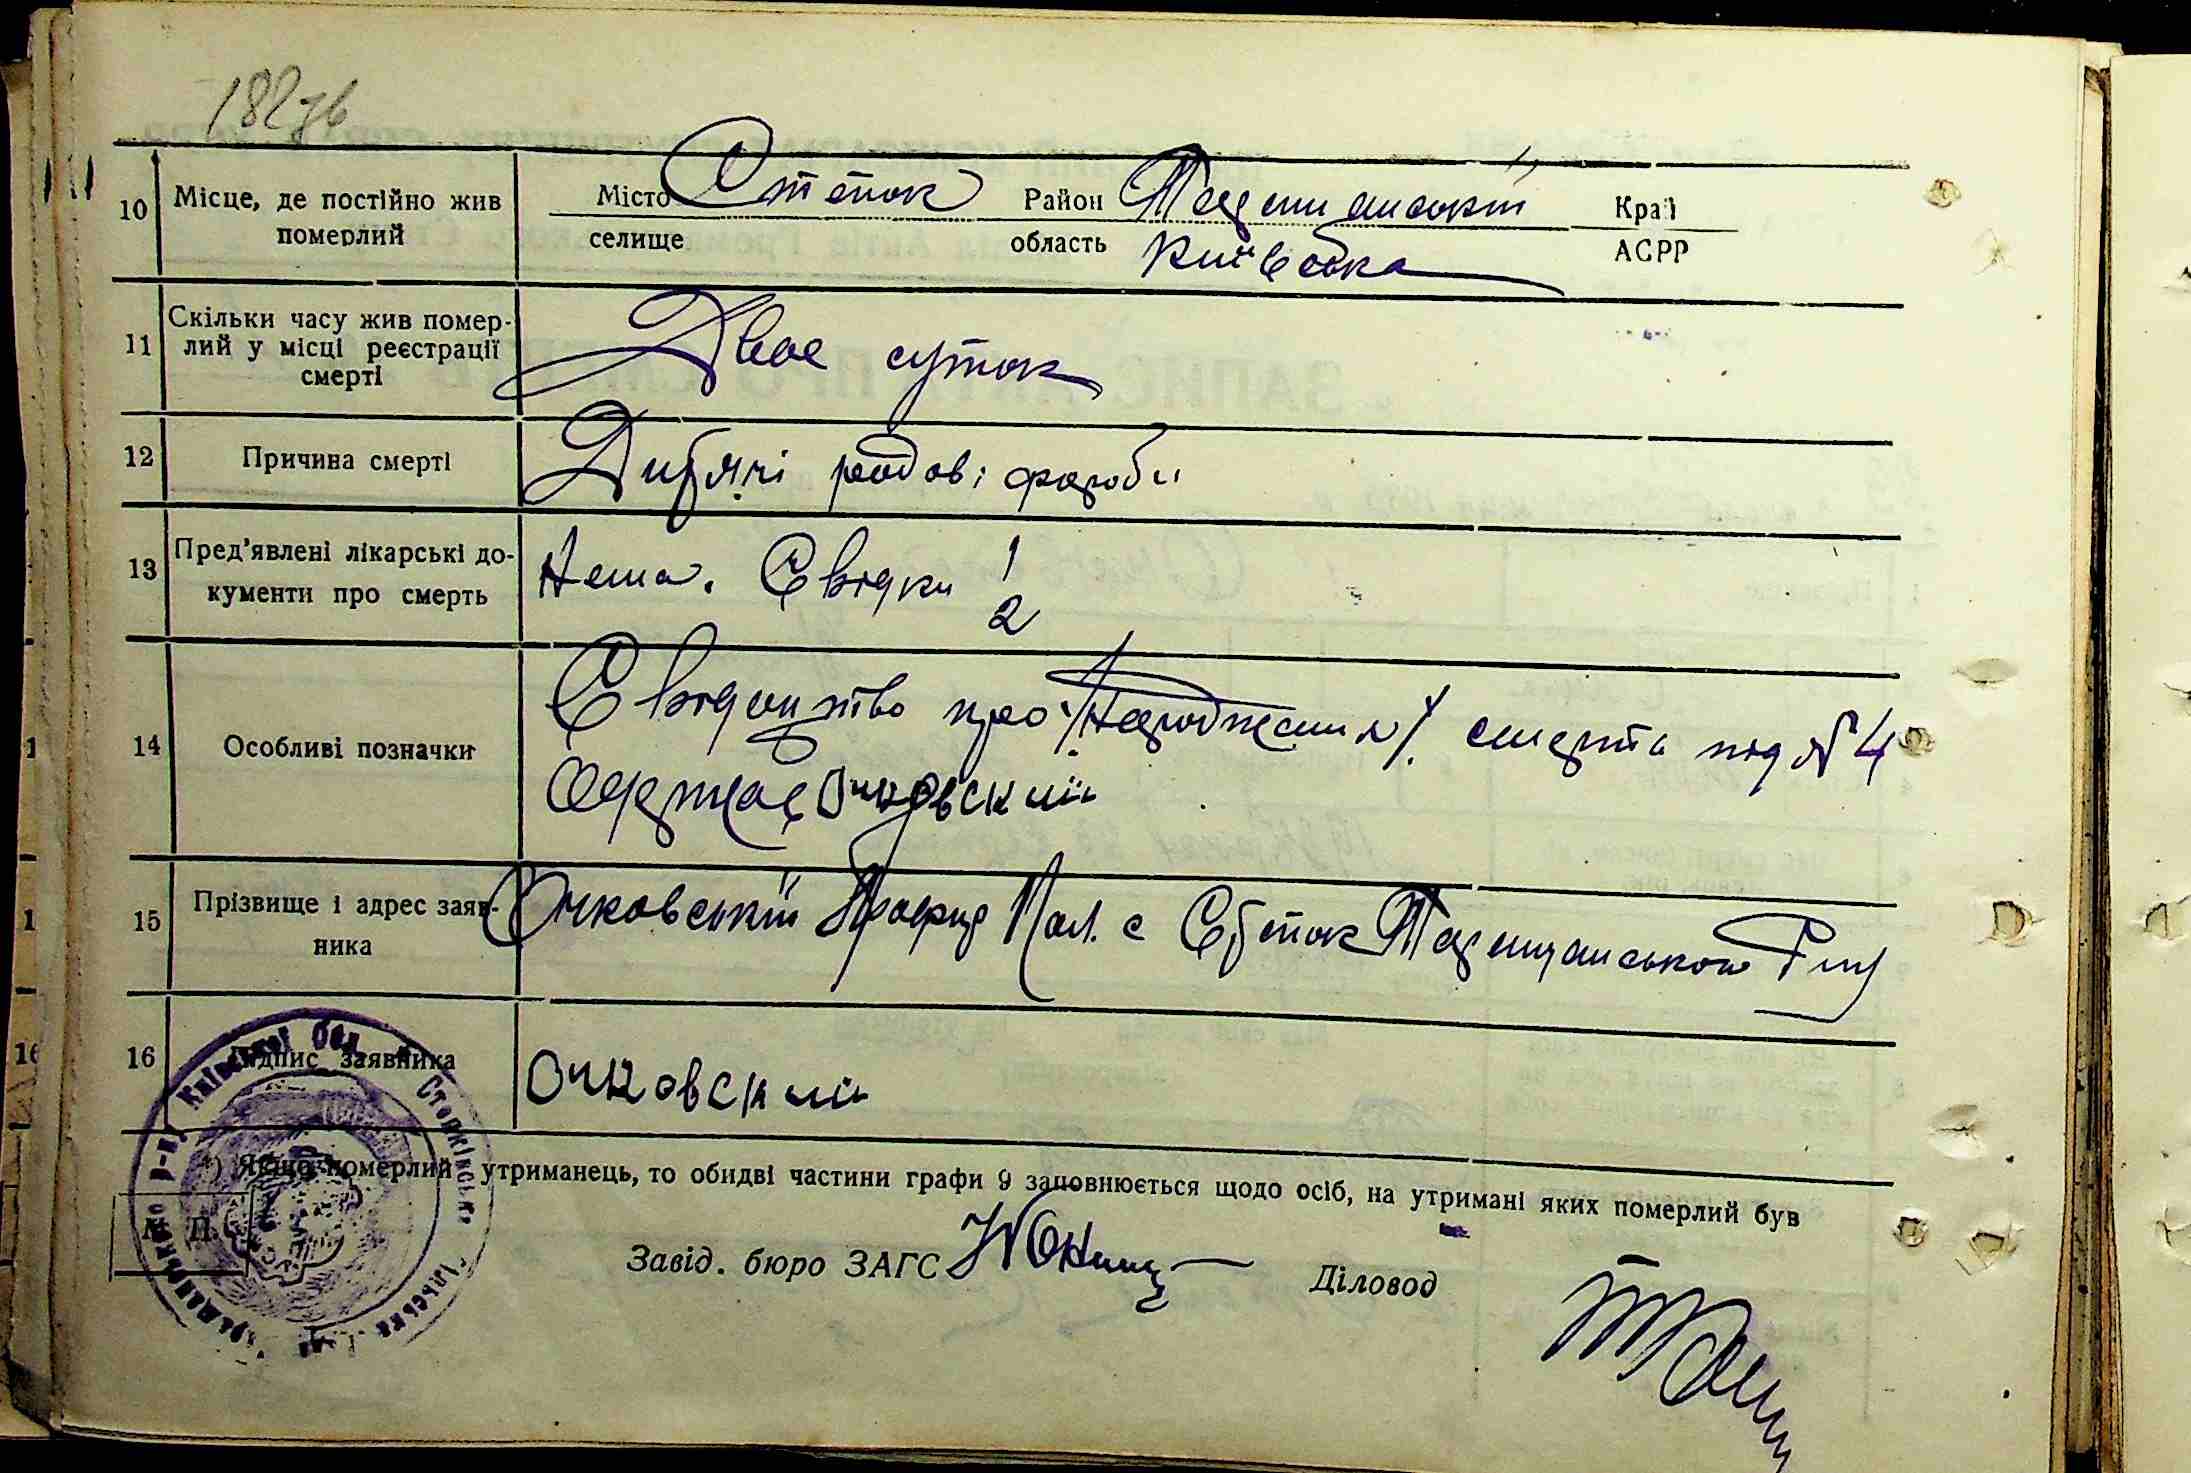 182зв
10 Місце, де постійно жив померлий
Місто селище Степок Район область Таращанський Київська Край АСРР
11 Скільки часу жив помер-
лий у місці реєстрації
смерті
Двое суток
12 Причина смерті
родові хороби
13 Пред'явлені лікарські до-
кументи про смерть
Нема. Свідки 1
2
14 Особливі позначки
Свідоцтво про /народження/ смерть під № 4
Одержав Очковский
15 Прізвище і адрес заяв-
ника
Очковський с Степок Таращанського р-ну
16 Підпис заявника
Очковский
*) Якщо померлий утриманець, то обидві частини графи 9 заповнюється щодо осіб, на утримані яких померлий був
М. П.
Київської обл. Степківська сільська р-ну
Завід. бюро ЗАГС
Діловод